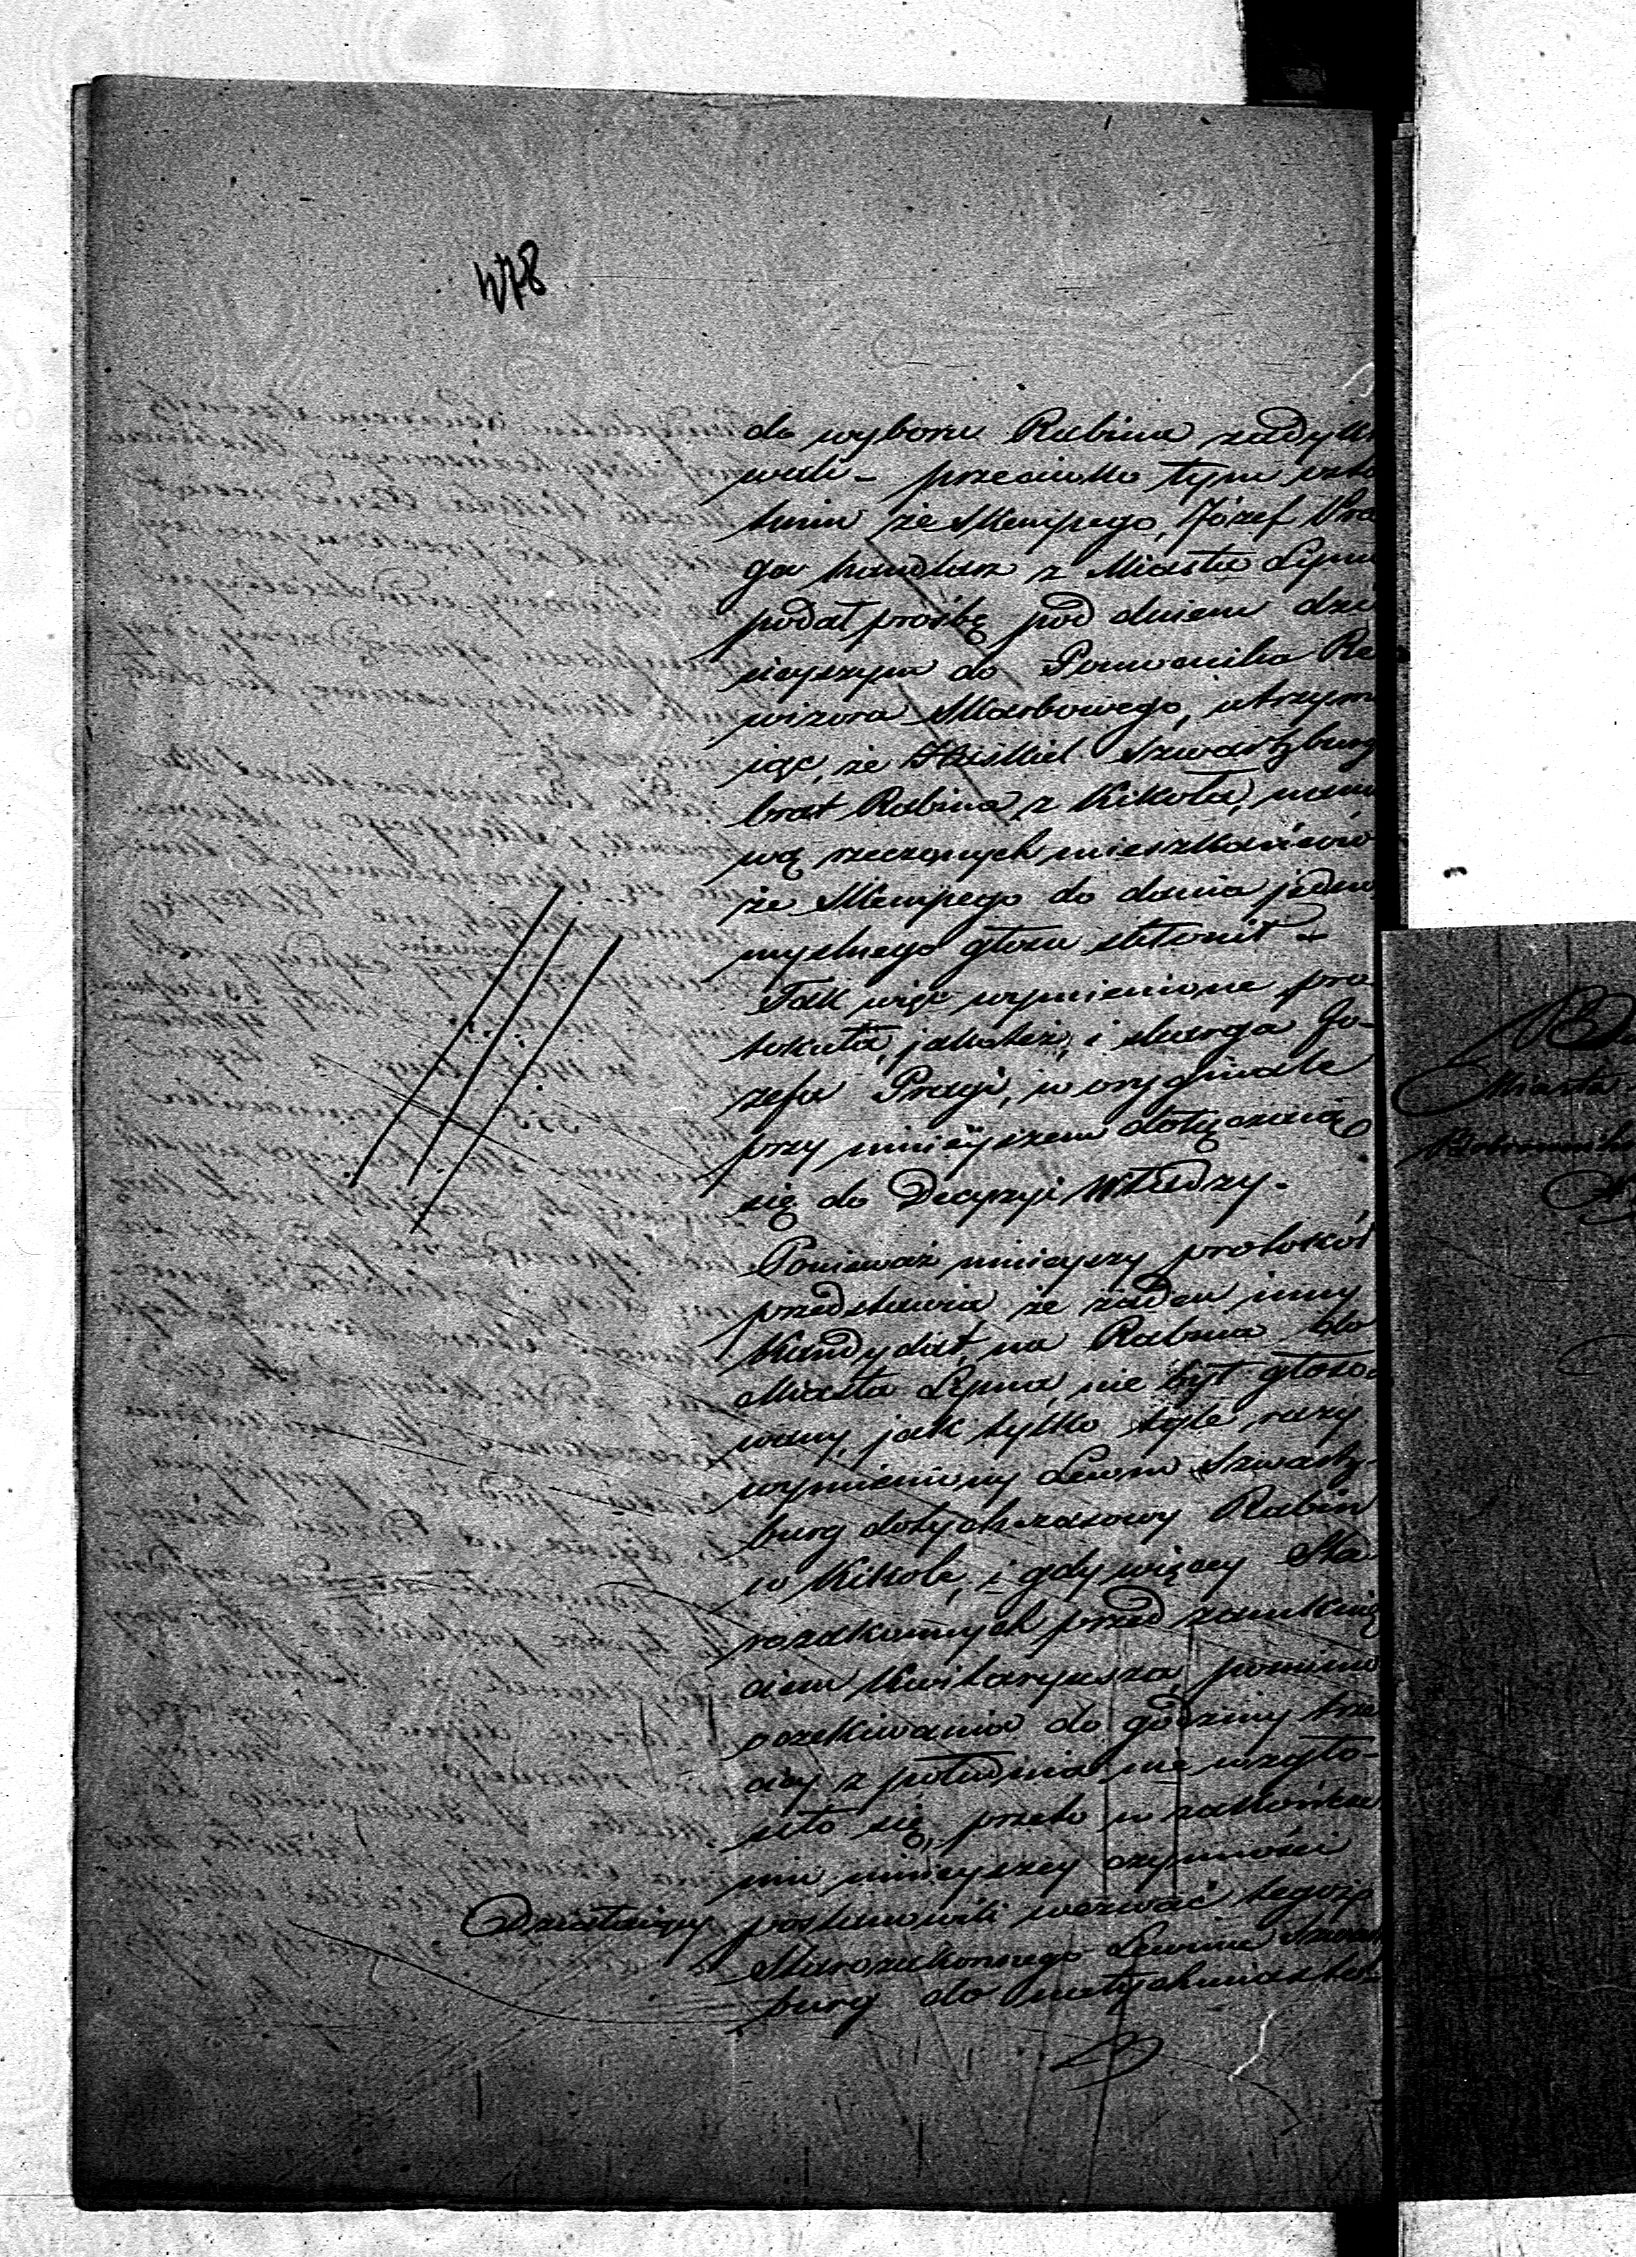 478
do wyboru Rabina zadykto
wali – przeciwko tym ostat
tnim ze Skempego, Józef Pra
ga handlarz z Miasta Lipna
podał prośbę pod dniem dzi
sieyszym do Pomocnika Re
wizora Skarbowego, utrzymu
iąc, że Szwartzburg
brat Rabina z Kikoła, namo
wą rzeczonych mieszkańców
ze Skempego do dania jedno
myslnego głosu skłonił –
Tak więc wymienione pro
tokuła, jakoteż, i skarga Jo-
zefa Pragi, w oryginale
przy ninieyszem dołączaią
się do Decyzyi Władzy.
Ponieważ ninieyszy protokół
przedstawia że żaden inny
Kandydat, na Rabina do
Miasta Lipna, nie był głoso-
wany, jak tylko tyle razy
wymieniony Lewin Szwartz-
burg dotychczasowy Rabin
w Kikole, i gdy więcey Sta
rozakonnych przed zamknię
ciem Kwitaryusza, pomimo
oczekiwania do godziny trze
ciey z południa nie zgło-
siło się, przeto w zakończe
niu ninieyszey czynności
Działaiący postanowili wezwać tegoż
Starozakonnego Lewina Szwartz
burg do natychmiasto-
Miasta